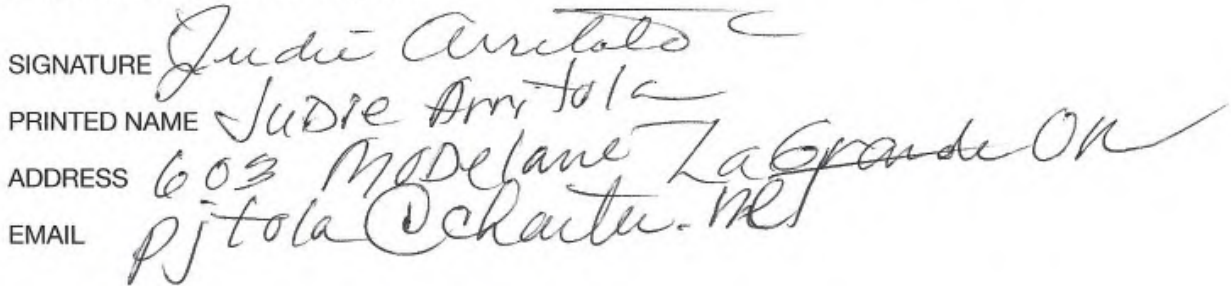 SIGNATURE Judie Arritola
PRINTED NAME JUDIE Arritola
ADDRESS 603 Modelane LaGrande OR
EMAIL pjtola@charter.net